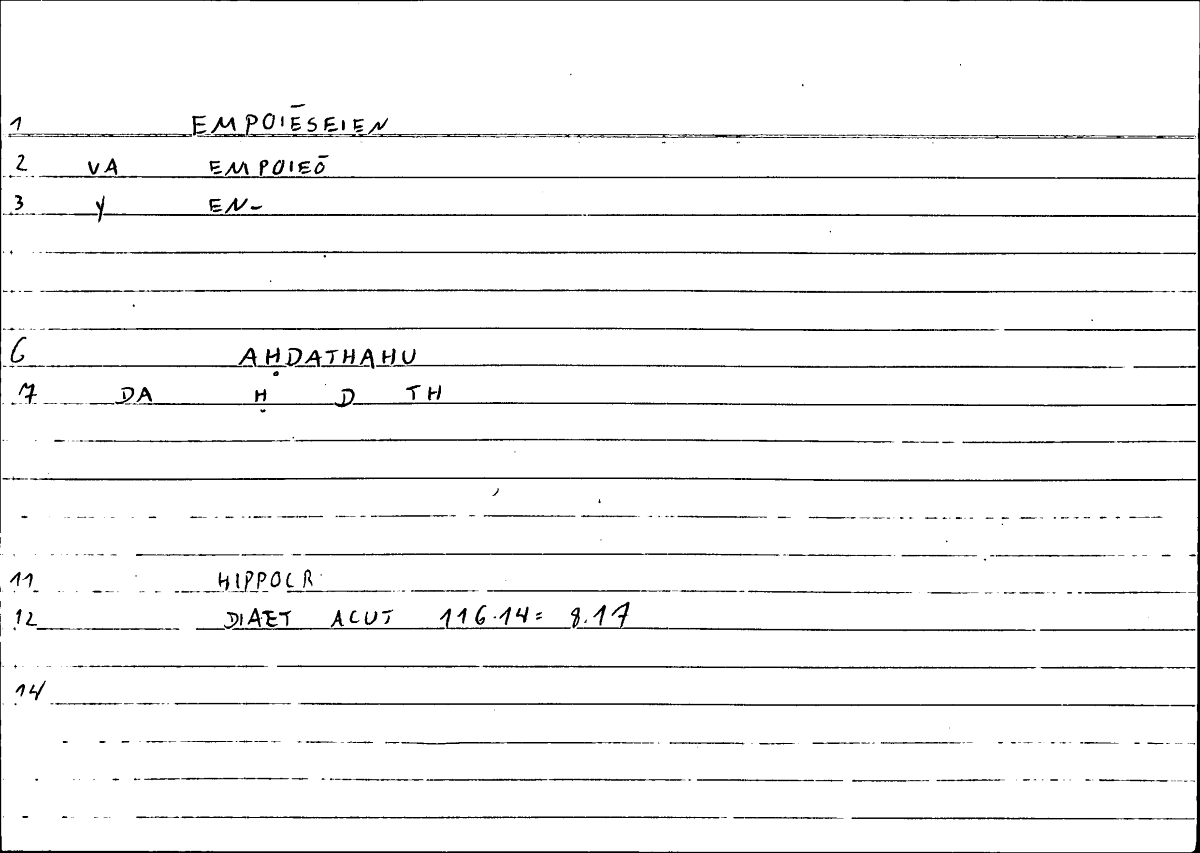 1 EMPOIĒSEIEN
2 VA EMPOIEŌ
3 Y EN-
6 AḤDATHAHU
7 DA Ḥ D TH
11 HIPPOCR
12 DIAET ACUT 116.14= 8.17
14